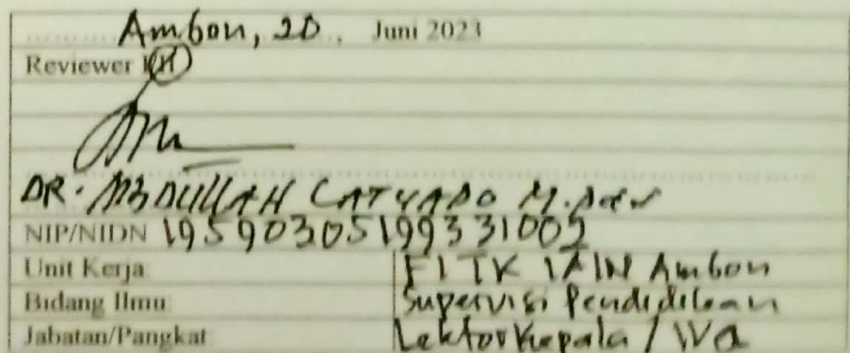 Ambon, 20, Juni 2023
Reviewer I/II
DR. ABDULLAH LATUAPO M.
NIP/NIDN 19590305199331002
Unit Kerja FITK IAIN Ambon
Bidang Ilmu Supervisi Pendidikan
Jabatan/Pangkat Lektor Kepala / IVa